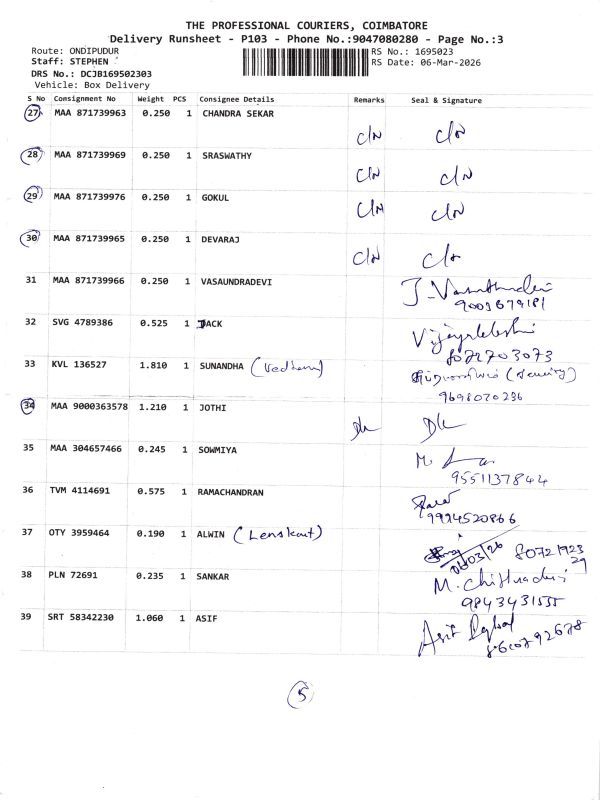 THE PROFESSIONAL COURIERS, COIMBATORE
Delivery Runsheet - P103 - Phone No.:9047080280 - Page No.:3
Route: ONDIPUDUR
RS No.: 1695023
Staff: STEPHEN
RS Date: 06-Mar-2026
DRS No.: DCJB169502303
Vehicle: Box Delivery
S No Consignment No Weight PCS Consignee Details Remarks Seal & Signature
27 MAA 871739963 0.250 1 CHANDRA SEKAR
C/N C/N
28 MAA 871739969 0.250 1 SRASWATHY
C/N C/N
29 MAA 871739976 0.250 1 GOKUL
C/N C/N
30 MAA 871739965 0.250 1 DEVARAJ
C/N C/N
31 MAA 871739966 0.250 1 VASAUNDRADEVI
J. Vasunthradevi
9003679181
32 SVG 4789386 0.525 1 JACK
8072703073
33 KVL 136527 1.810 1 SUNANDHA (Vedham)
(Security)
9698020236
34 MAA 9000363578 1.210 1 JOTHI
DL DL
35 MAA 304657466 0.245 1 SOWMIYA
M.
9551137844
36 TVM 4114691 0.575 1 RAMACHANDRAN
9994520866
37 OTY 3959464 0.190 1 ALWIN (Lenskart)
06/03/26 80721923
29
38 PLN 72691 0.235 1 SANKAR
M. Chithradevi
9843431535
39 SRT 58342230 1.060 1 ASIF
Asif Iqbal
8610792678
5